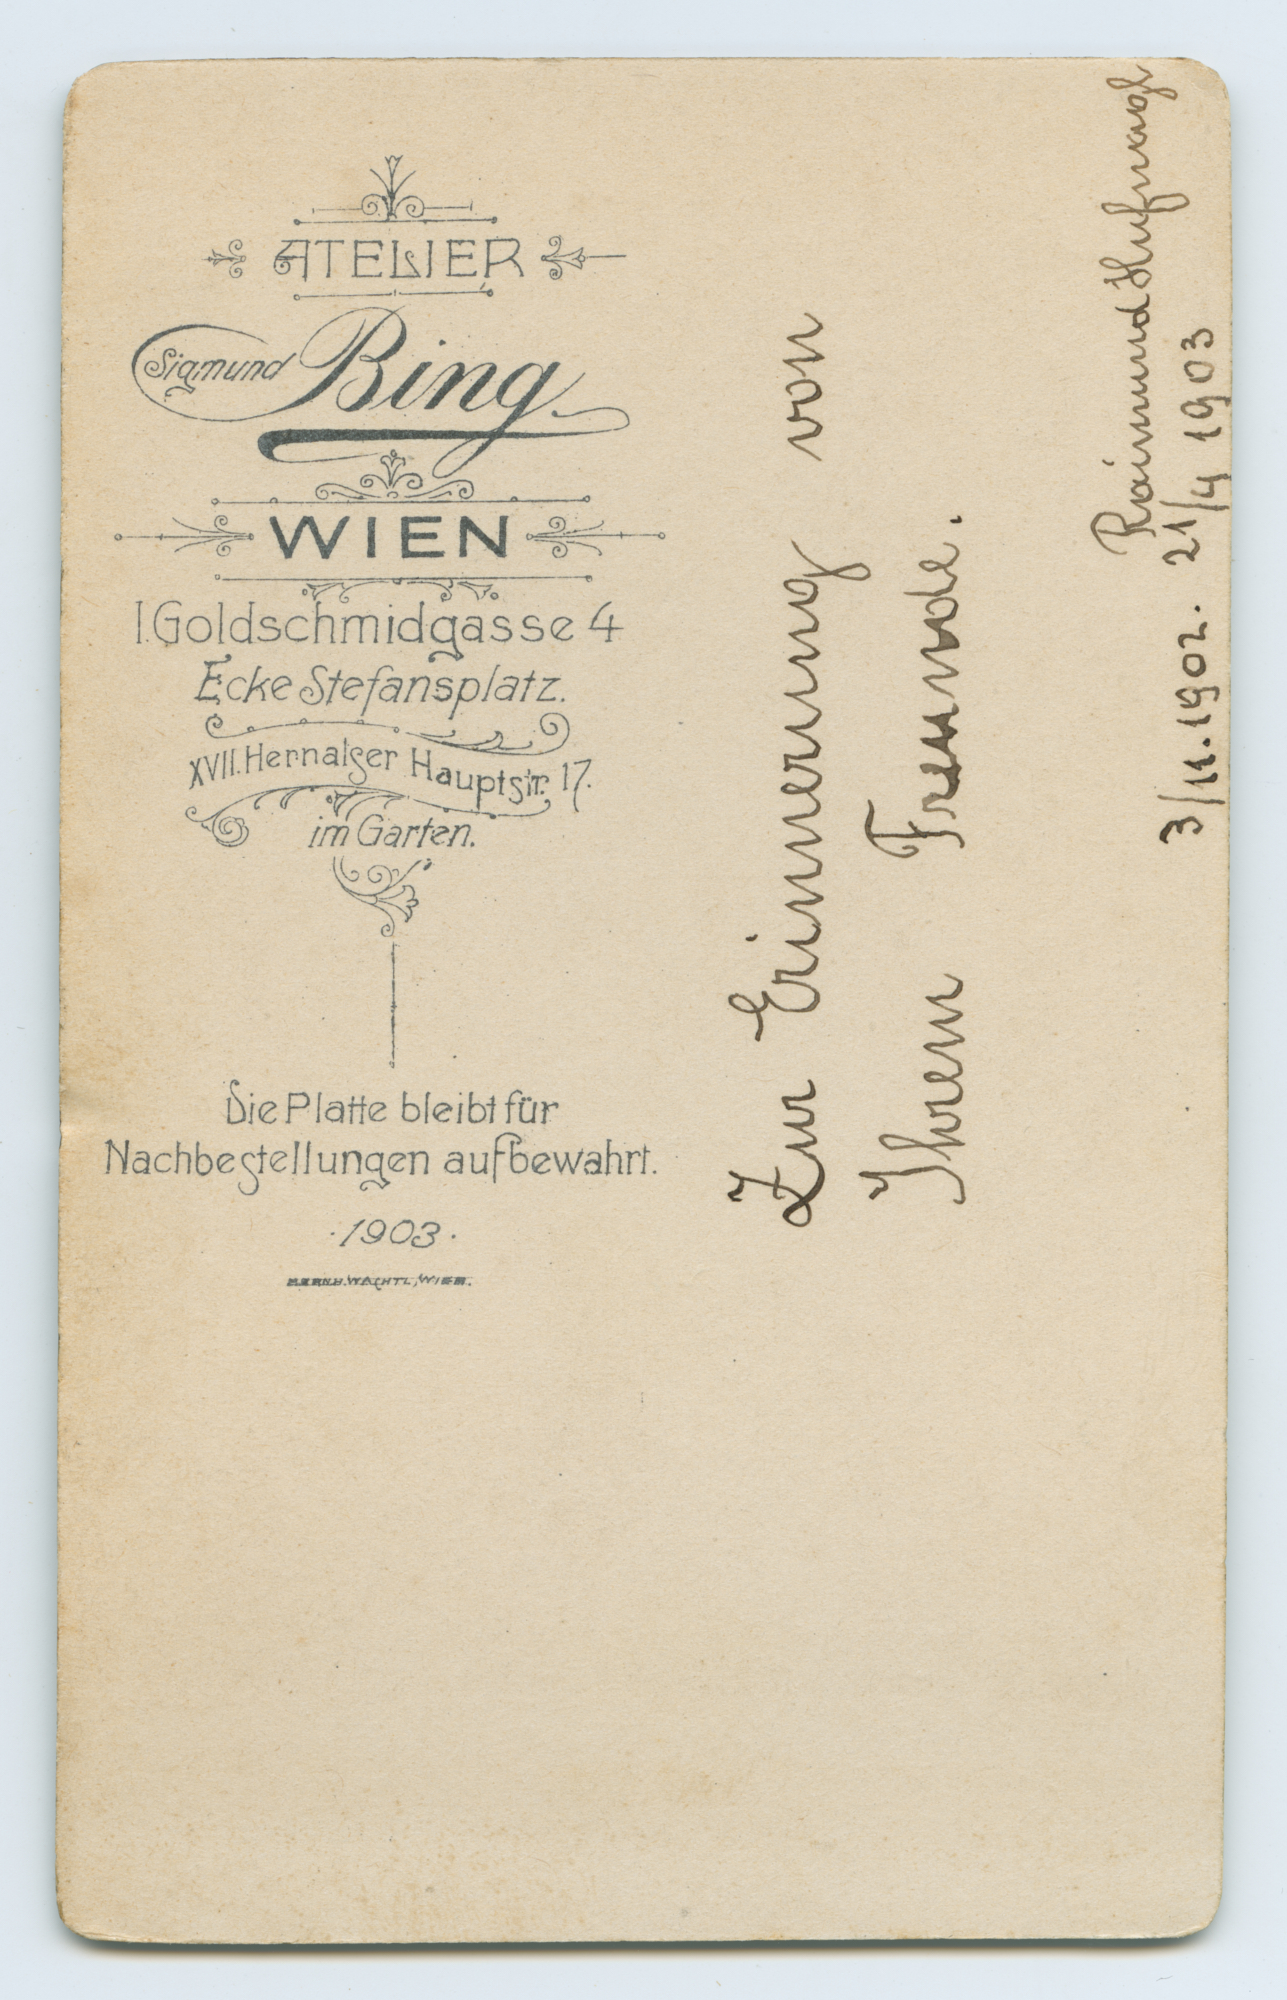 ATELIER
Sigmund Bing
WIEN
I. Goldschmidgasse 4
Ecke Stefansplatz.
XVII. Hernalser Hauptstr. 17.
im Garten.
Die Platte bleibt für
Nachbestellungen aufbewahrt.
·1903·
BERNH. WACHTL, WIEN.
Zur Erinnerung von
Ihrem Freunde.
Raimund Hufnagl
3/11.1902. 21/4 1903